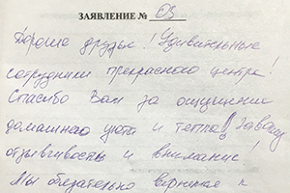 ЗАЯВЛЕНИЕ № 03
Дорогие друзья! Удивительные
сотрудники прекрасного центра!
Спасибо Вам за ощущение
домашнего уюта и тепла! За Вашу
отзывчивость и внимание!
Мы обязательно вернемся к